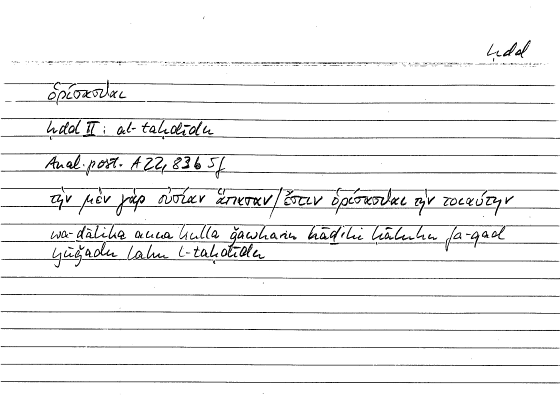 ḥdd
ὁρίσασθαι
ḥdd II: at-taḥdīdu
Anal. post. A 22, 83b 5f
τὴν μὲν γὰρ οὐσίαν ἅπασαν / ἔστιν ὁρίσασθαι τὴν τοιαύτην
wa-ḏālika anna kulla ǧawharin hāḏihi ḥāluhu fa-qad
yūǧadu lahu t-taḥdīdu